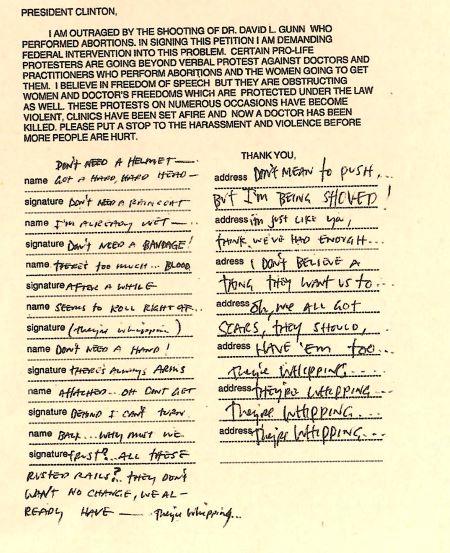 PRESIDENT CLINTON,
I AM OUTRAGED BY THE SHOOTING OF DR. DAVID L. GUNN WHO
PERFORMED ABORTIONS. IN SIGNING THIS PETITION I AM DEMANDING
FEDERAL INTERVENTION INTO THIS PROBLEM. CERTAIN PRO-LIFE
PROTESTERS ARE GOING BEYOND VERBAL PROTEST AGAINST DOCTORS AND
PRACTITIONERS WHO PERFORM ABORITIONS AND THE WOMEN GOING TO GET
THEM. I BELIEVE IN FREEDOM OF SPEECH BUT THEY ARE OBSTRUCTING
WOMEN AND DOCTOR'S FREEDOMS WHICH ARE PROTECTED UNDER THE LAW
AS WELL. THESE PROTESTS ON NUMEROUS OCCASIONS HAVE BECOME
VIOLENT, CLINICS HAVE BEEN SET AFIRE AND NOW A DOCTOR HAS BEEN
KILLED. PLEASE PUT A STOP TO THE HARASSMENT AND VIOLENCE BEFORE
MORE PEOPLE ARE HURT.
THANK YOU,
DON'T NEED A HELMET —
name GOT A HARD, HARD HEAD —
signature DON'T NEED A RAINCOAT
name I'M ALREADY WET —
signature DON'T NEED A BANDAGE!
name THERE'S TOO MUCH... BLOOD
signature AFTER A WHILE
name SEEMS TO ROLL RIGHT OFF...
signature (they're whippin)
name DON'T NEED A HAND!
signature THERE'S ALWAYS ARMS
name ATTACHED... OH DON'T GET
signature BEHIND I CAN'T TURN
name BACK... WHY MUST WE
signature TRUST?.. ALL THESE
RUSTED RAILS?.. THEY DON'T
WANT NO CHANGE, WE AL-
READY HAVE — They're whipping...
address DON'T MEAN TO PUSH,...
BUT I'M BEING SHOVED!
address i'm just like you,
THINK WE'VE HAD ENOUGH...
adress I DON'T BELIEVE A
THING THEY WANT US TO...
address Oh, we ALL GOT
SCARS, THEY SHOULD,
address HAVE 'EM TOO...
They're WHIPPING...
address THEY'RE WHIPPING...
They're WHIPPING...
address They're WHIPPING...